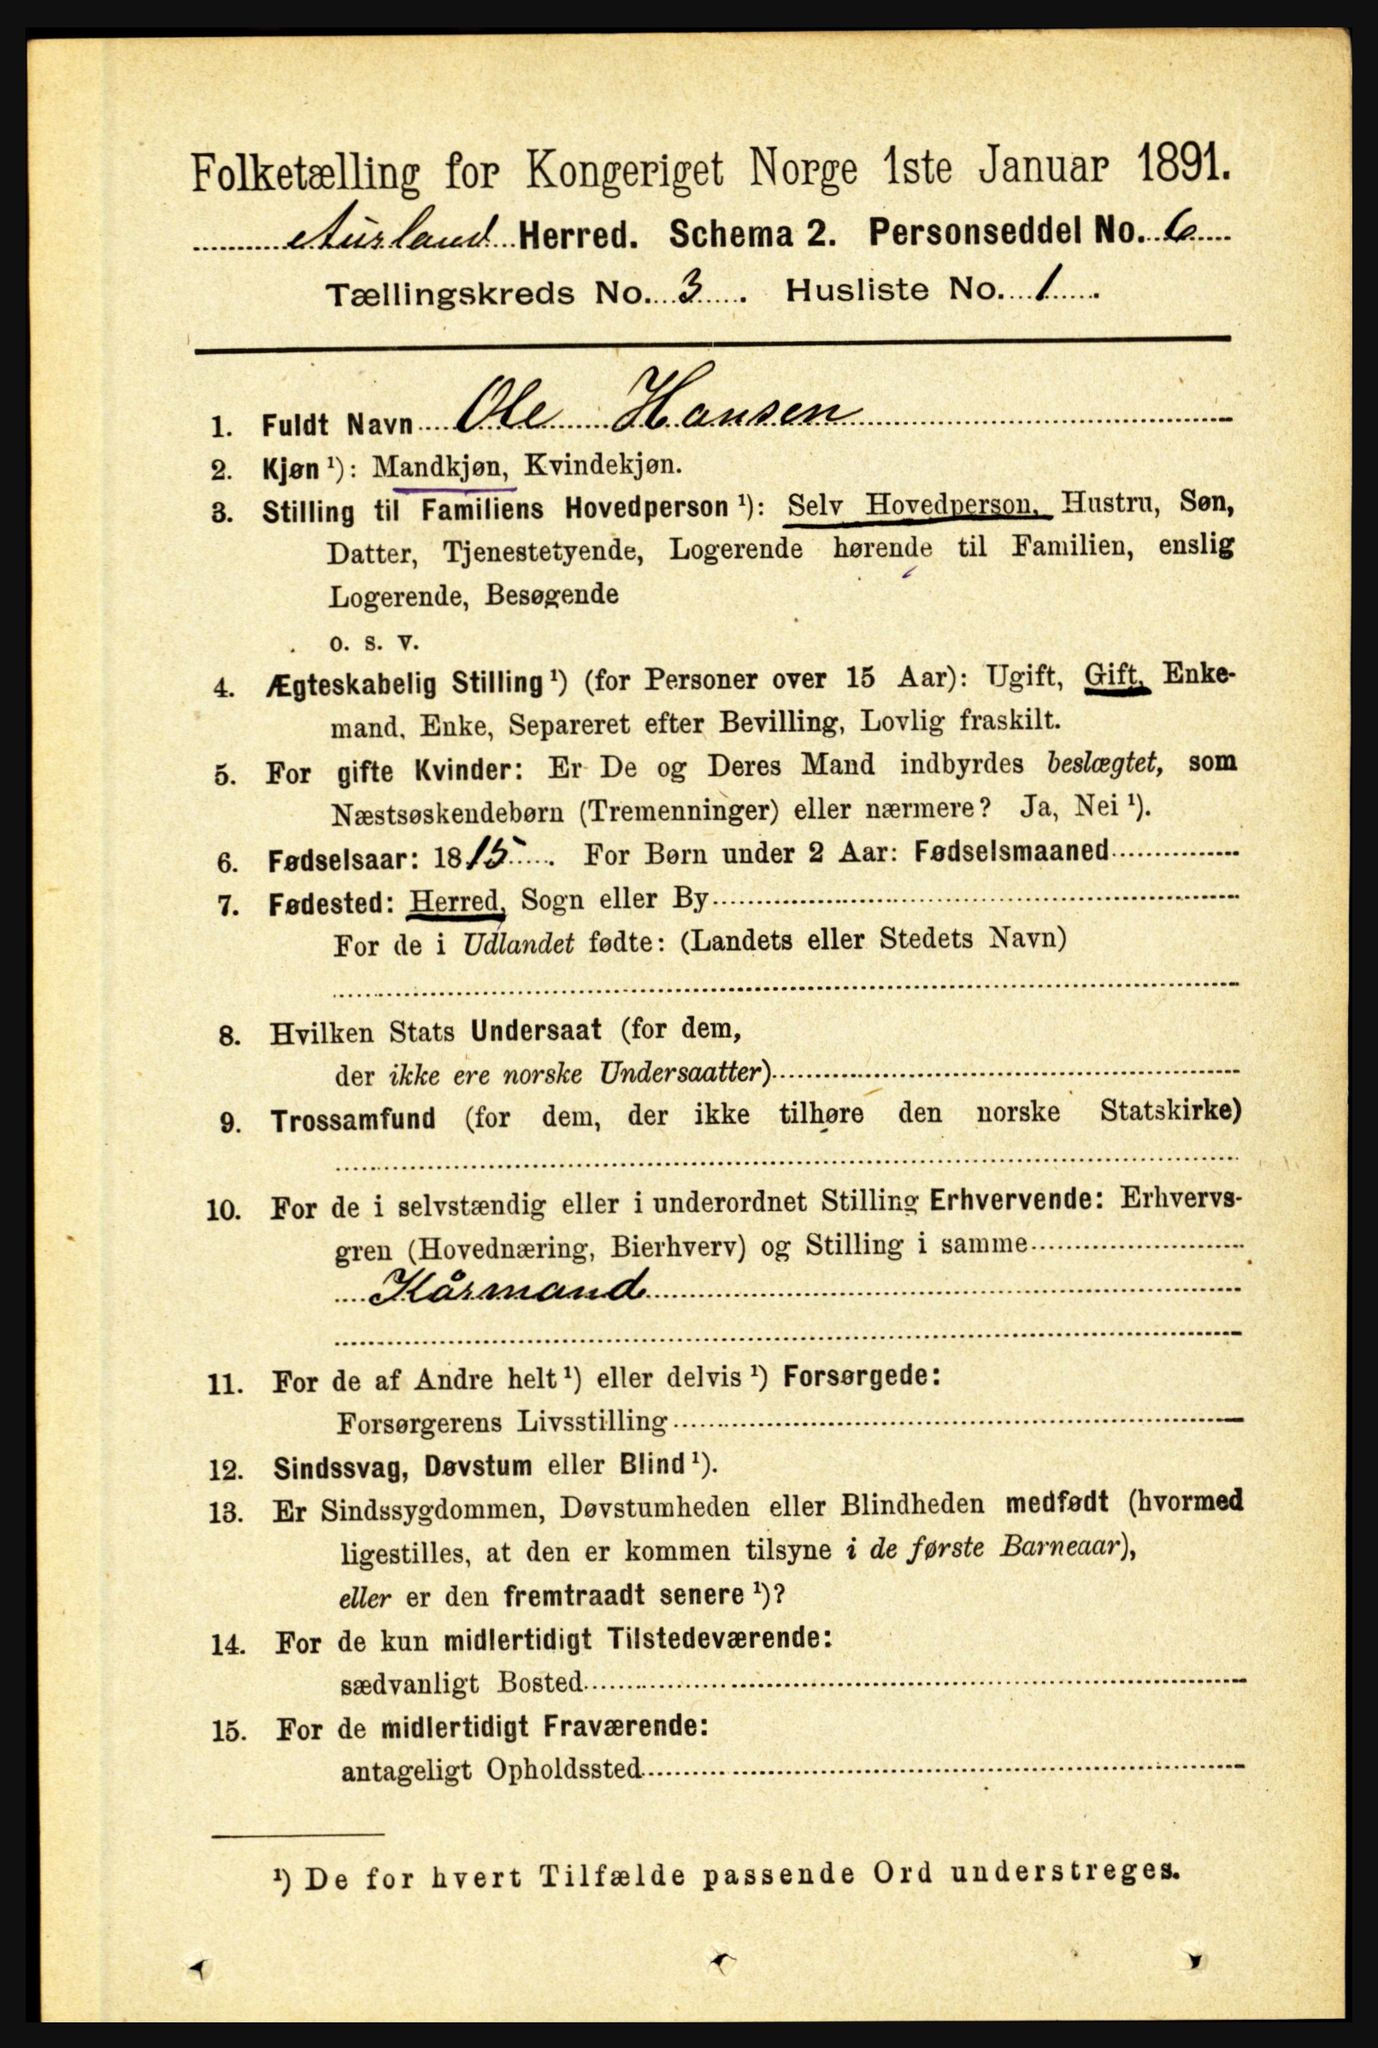 Folketælling for Kongeriget Norge 1ste Januar 1891.
Aurland Herred. Schema 2. Personseddel No. 6
Tællingskreds No. 3. Husliste No. 1.
1. Fuldt Navn Ole Hansen
2. Kjøn ¹): Mandkjøn, Kvindekjøn.
3. Stilling til Familiens Hovedperson ¹): Selv Hovedperson, Hustru, Søn,
Datter, Tjenestetyende, Logerende hørende til Familien, enslig
Logerende, Besøgende
o. s. v.
4. Ægteskabelig Stilling ¹) (for Personer over 15 Aar): Ugift, Gift, Enke-
mand, Enke, Separeret efter Bevilling, Lovlig fraskilt.
5. For gifte Kvinder: Er De og Deres Mand indbyrdes beslægtet, som
Næstsøskendebørn (Tremenninger) eller nærmere? Ja, Nei ¹).
6. Fødselsaar: 1815. For Børn under 2 Aar: Fødselsmaaned
7. Fødested: Herred, Sogn eller By
For de i Udlandet fødte: (Landets eller Stedets Navn)
8. Hvilken Stats Undersaat (for dem,
der ikke ere norske Undersaatter)
9. Trossamfund (for dem, der ikke tilhøre den norske Statskirke)
10. For de i selvstændig eller i underordnet Stilling Erhvervende: Erhvervs-
gren (Hovednæring, Bierhverv) og Stilling i samme
Kårmand
11. For de af Andre helt ¹) eller delvis ¹) Forsørgede:
Forsørgerens Livsstilling
12. Sindssvag, Døvstum eller Blind ¹).
13. Er Sindssygdommen, Døvstumheden eller Blindheden medfødt (hvormed
ligestilles, at den er kommen tilsyne i de første Barneaar),
eller er den fremtraadt senere ¹)?
14. For de kun midlertidigt Tilstedeværende:
sædvanligt Bosted
15. For de midlertidigt Fraværende:
antageligt Opholdssted
¹) De for hvert Tilfælde passende Ord understreges.